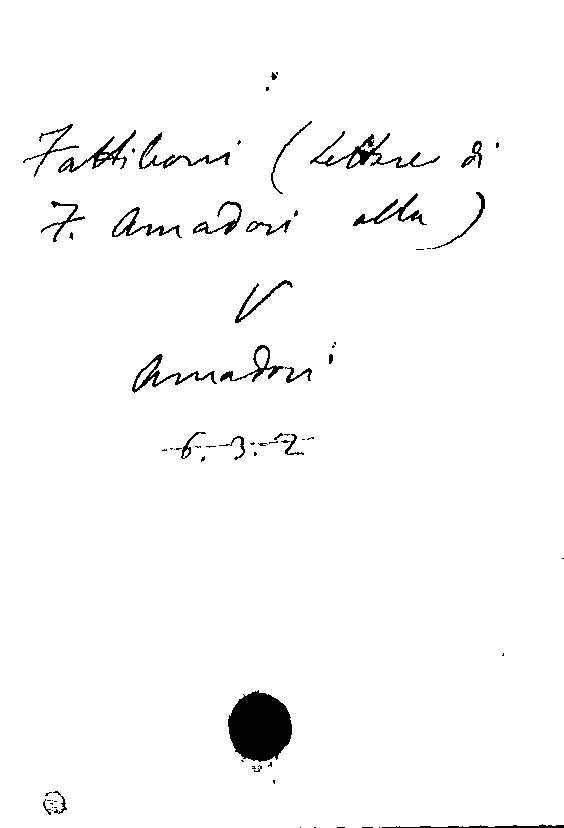 Fattiboni (Lettere di
F. Amadori alla)
V
Amadori
6.3.2